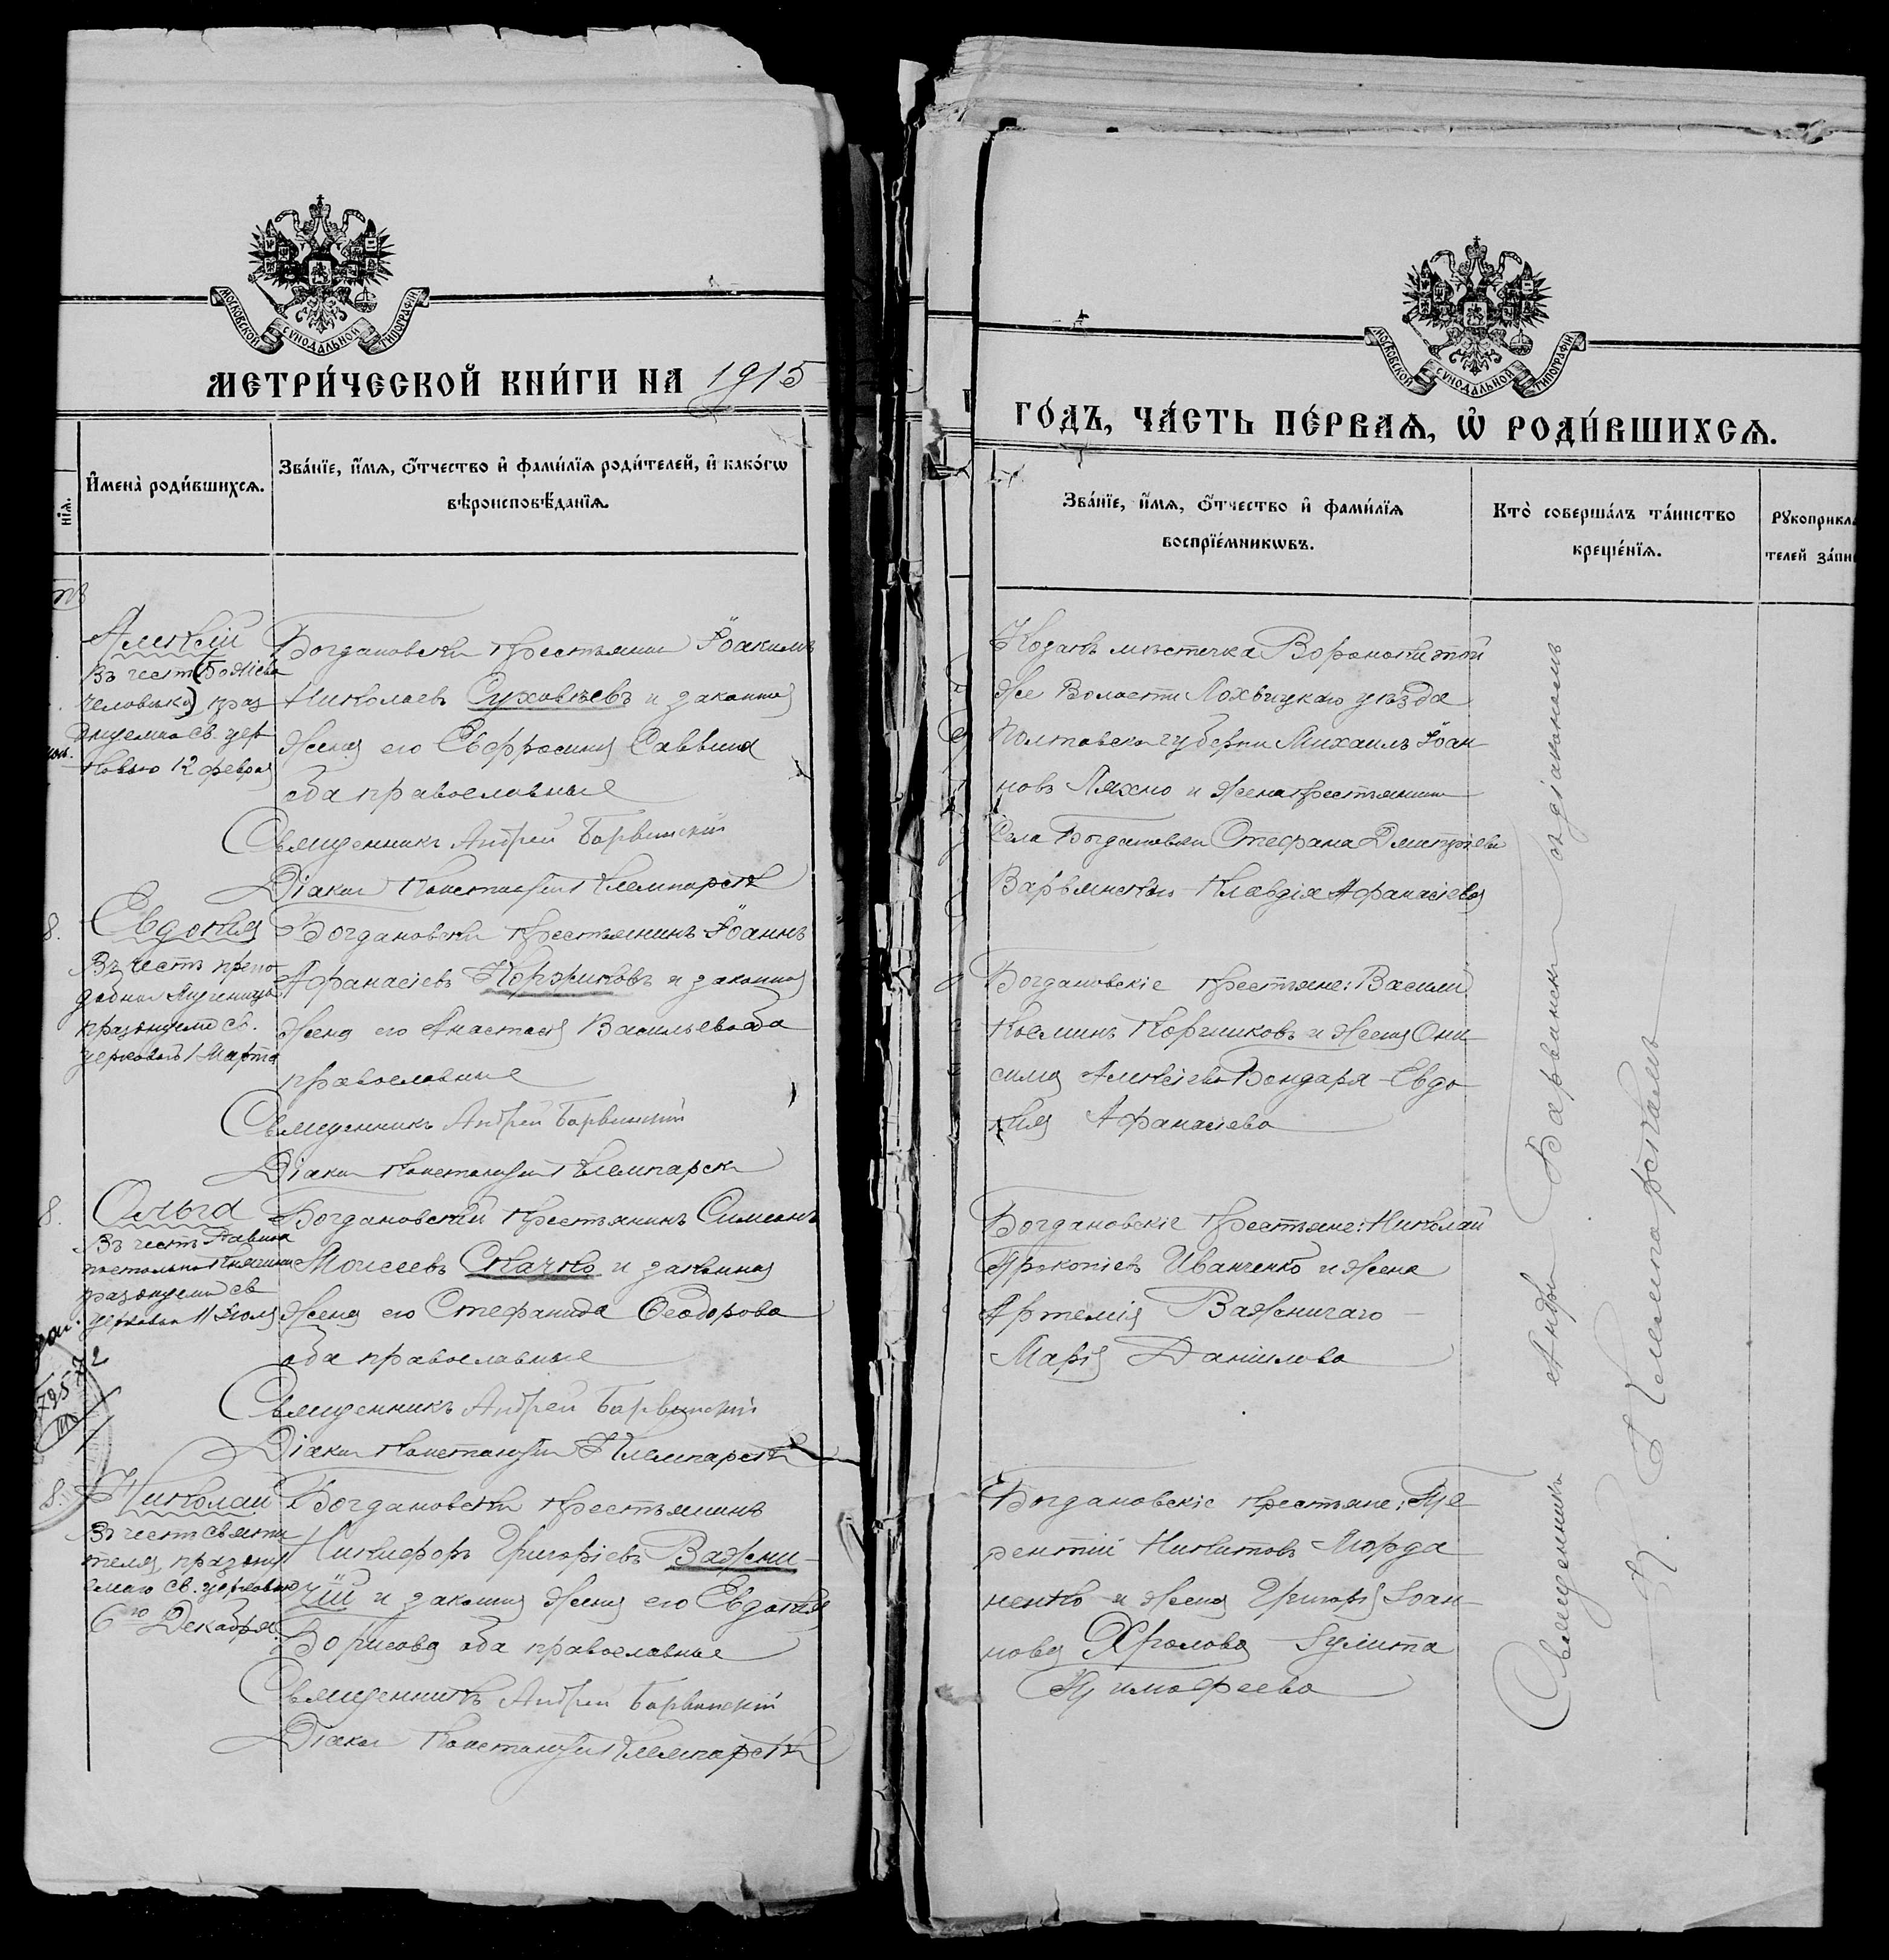 МОСКОВСКОЙ СУНОДАЛЬНОЙ ТИПОГРАФІИ
МЕТРИ́ЧЕСКОЙ КНИ́ГИ НА 1915
НІѦ.
И҆мена̀ роди́вшихсѧ.
Зва́нїе, и҆́мѧ, ѻ҆́тчество и҆ фами́лїѧ роди́телей, и҆ како́гѡ
вѣроисповѣ́данїѧ.
Алексій
Въ честь (Божіева
человѣка) праз
днуемаго св. цер
ковью 12 февра
Богдановскій крестьянинъ Іоакимъ
Николаевъ Суховѣевъ и законная
жена его Евфросинія Саввина
оба православные
Священникъ Андрей Барвинскій
Діаконъ Константинъ Клепарскій
8.
Евдокія
Въ честь препо
добной мученицы
празднуемой св.
церковью 1 Марта
Богдановскій крестьянинъ Іоаннъ
Афанасіевъ Коржиковъ и законная
жена его Анастасія Васильева оба
православные
Священникъ Андрей Барвинскій
Діаконъ Константинъ
8.
Ольга
Въ честь Равно
апостольной Княгини
празднуемой св
церковью 11 Іюля
Богдановскій крестьянинъ Симеонъ
Моисеевъ Скачко и законная
жена его Стефанида Ѳеодорова
оба православные
Священникъ Андрей Барвинскій
Діаконъ Константинъ
72572
8.
Николай
Въ честь святи
теля праздну
емаго св. церковью
6го Декабря.
Богдановскій крестьянинъ
Никифоръ Григоріевъ Важни-
чій и законная жена его Евдокія
Борисова оба православные
Священникъ Андрей Барвинскій
Діаконъ Константинъ
МОСКОВСКОЙ СУНОДАЛЬНОЙ ТИПОГРАФІИ
ГО́ДЪ, ЧА́СТЬ ПЕ́РВАѦ, Ѡ҆ РОДИ́ВШИХСѦ.
Зва́нїе, и҆́мѧ, ѻ҆́тчество и҆ фами́лїѧ
воспрїе́мникѡвъ.
Кто̀ соверша́лъ та́инство
креще́нїѧ.
Рꙋкоприкла
телей за́пи
Козакъ мѣстечка Воронокъ той
же Волости Лохвицкаго уѣзда
Полтавской губерніи Михаилъ Іоан-
новъ Ляхно и жена крестьянина
села Богдановки Стефана Димитріева
Варвинскаго Клавдія Афанасіева
Богдановскіе крестьяне: Василій
Косминъ Коржиковъ и жена Они-
сима Алексіева Бондаря Евдо
кія Афанасіева
Богдановскіе крестьяне: Николай
Прокопіевъ Иванченко и жена
Артемія Важничаго
Марія Даніилова
Богдановскіе крестьяне: Те-
рентій Никитовъ
ненко и жена Григорія Іоан-
нова Хролова Іулитта
Тимофеева
Священникъ Андрей Барвинскій съ діакономъ
К. Клепарскимъ